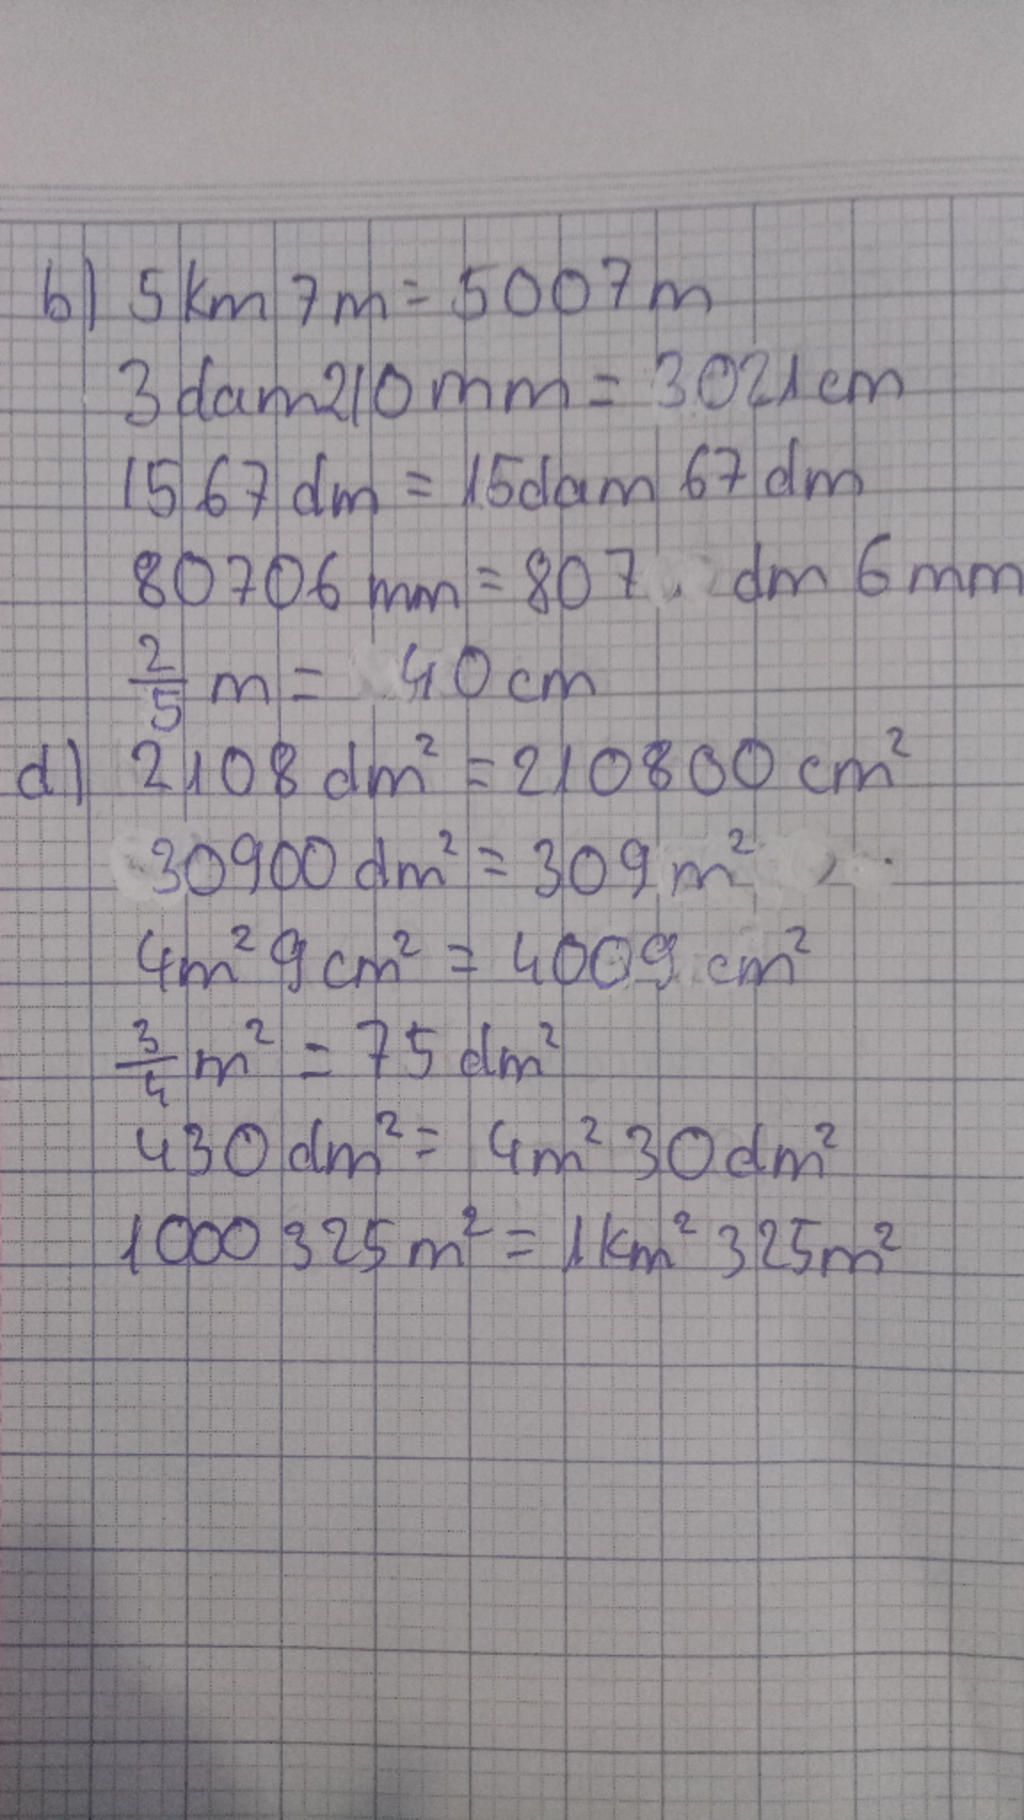 b) 5km 7m = 5007m
3dam210mm = 3021cm
1567dm = 15dam 67dm
80706mm = 807 dm 6mm
2/5 m = 40cm
d) 2108dm² = 210800cm²
30900dm² = 309m²
4m² 9cm² = 4009cm²
3/4 m² = 75dm²
430dm² = 4m² 30dm²
1000325m² = 1km² 325m²